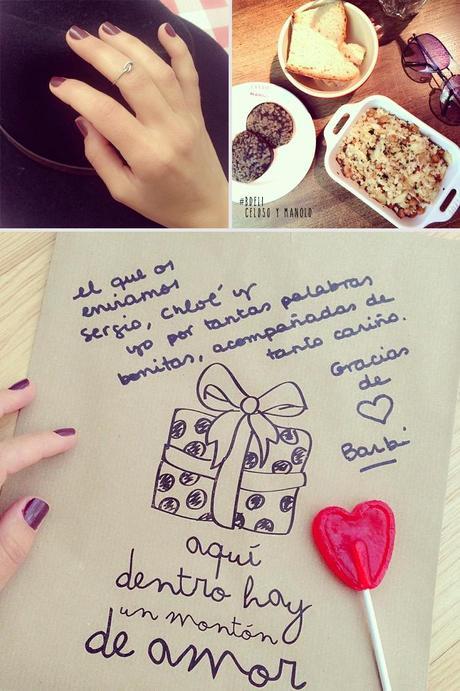 #BDELI
CELOSO Y MANOLO
el que os
enviamos
Sergio, Chloé y
yo por tantas palabras
bonitas, acompañadas de
tanto cariño.
Gracias
de
♡
Barbi
aquí
dentro hay
un montón
de amor